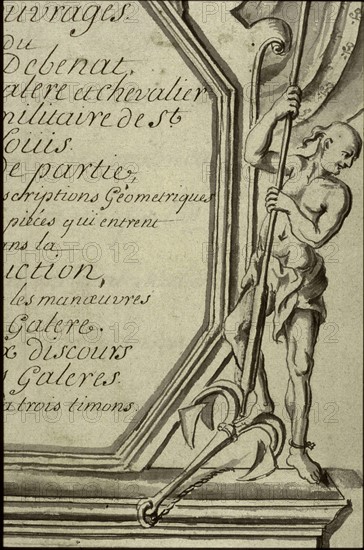 uvrages.
du
Debenat,
alere et chevalier
militaire de St
Loüis.
de partie,
scriptions Géometriques
pièces qui entrent
ans la
uction,
les manœuvres
Galere.
x discours
s Galeres.
a trois timons.
PHOTO 12